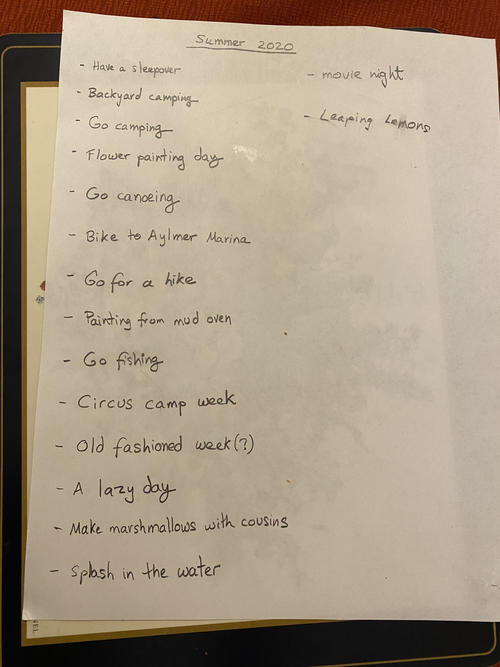 Summer 2020
- Have a sleepover
- Backyard camping
- Go camping
- Flower painting day
- Go canoeing
- Bike to Aylmer Marina
- Go for a hike
- Painting from mud oven
- Go fishing
- Circus camp week
- Old fashioned week(?)
- A lazy day
- Make marshmallows with cousins
- Splash in the water
- movie night
- Leaping Lemons